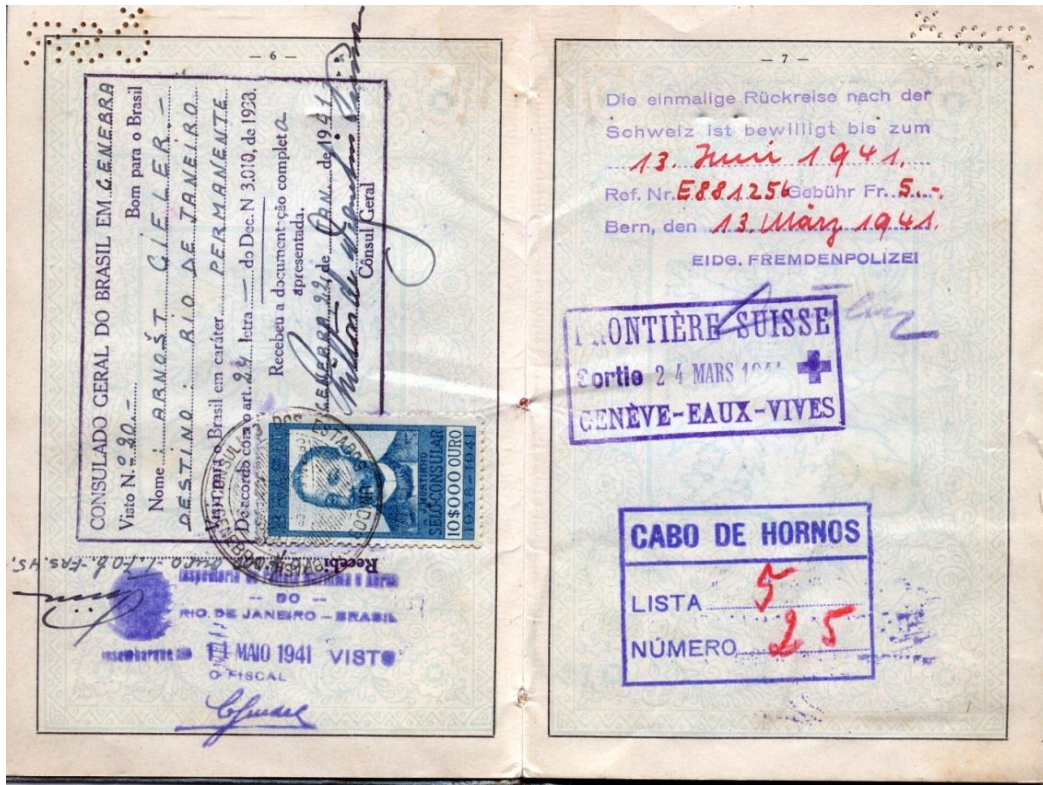 — 6 —
CONSULADO GERAL DO BRASIL EM GENEBRA
Visto N. 290.- Bom para o Brasil
Nome ARNOŠT GIELER.-
DESTINO: RIO DE JANEIRO
Viaja para o Brasil em caráter PERMANENTE
De accordo com o art. 24 letra — do Dec. N 3.010, de 1938.
Recebeu a documentção completa
apresentada.
GENEBRA, 22, de JAN. de 1941
Cônsul Geral
ESTADOS UNIDOS
SELO CONSULAR
10$000 OURO
1938-1941
Recebi
-- DO --
RIO DE JANEIRO — BRASIL
MAIO 1941 VISTO
O FISCAL
— 7 —
Die einmalige Rückreise nach der
Schweiz ist bewilligt bis zum
13. Juni 1941.
Ref. Nr. E881256 Gebühr Fr. 5.-
Bern, den 13. März 1941.
EIDG. FREMDENPOLIZEI
FRONTIÈRE SUISSE
Sortie 24 MARS
GENÈVE-EAUX-VIVES
CABO DE HORNOS
LISTA 5
NÚMERO 25